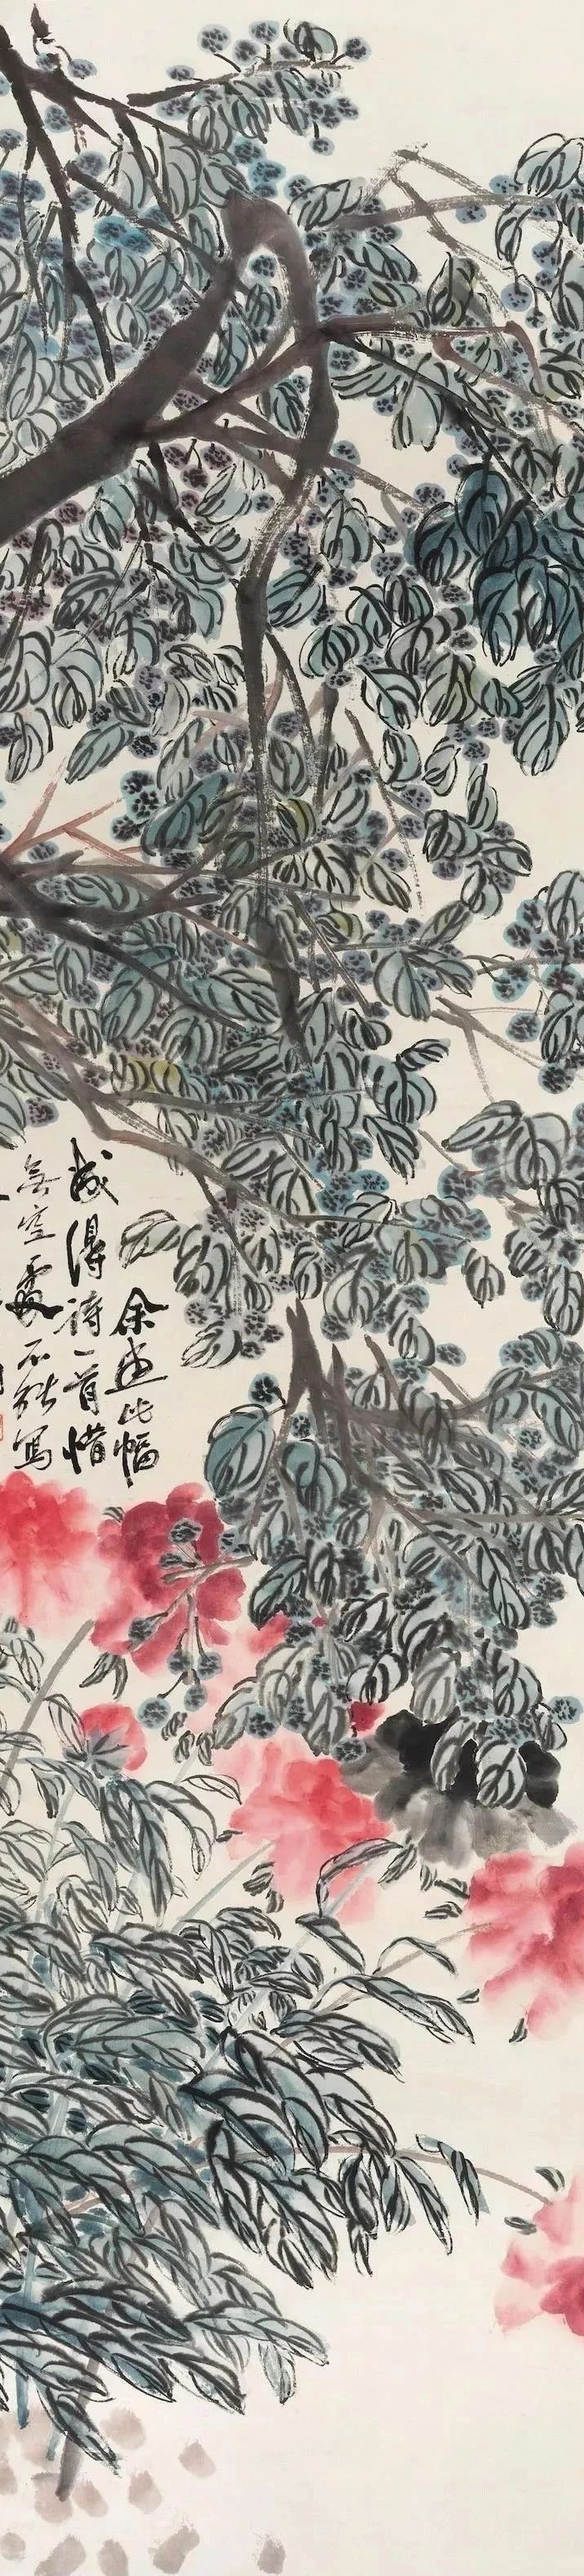 余画此幅
成得诗一首惜
無空處不能寫